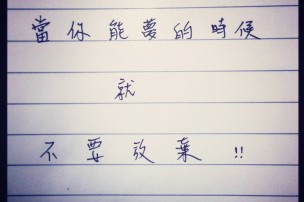 當你能夢的時候
就
不要放棄!!